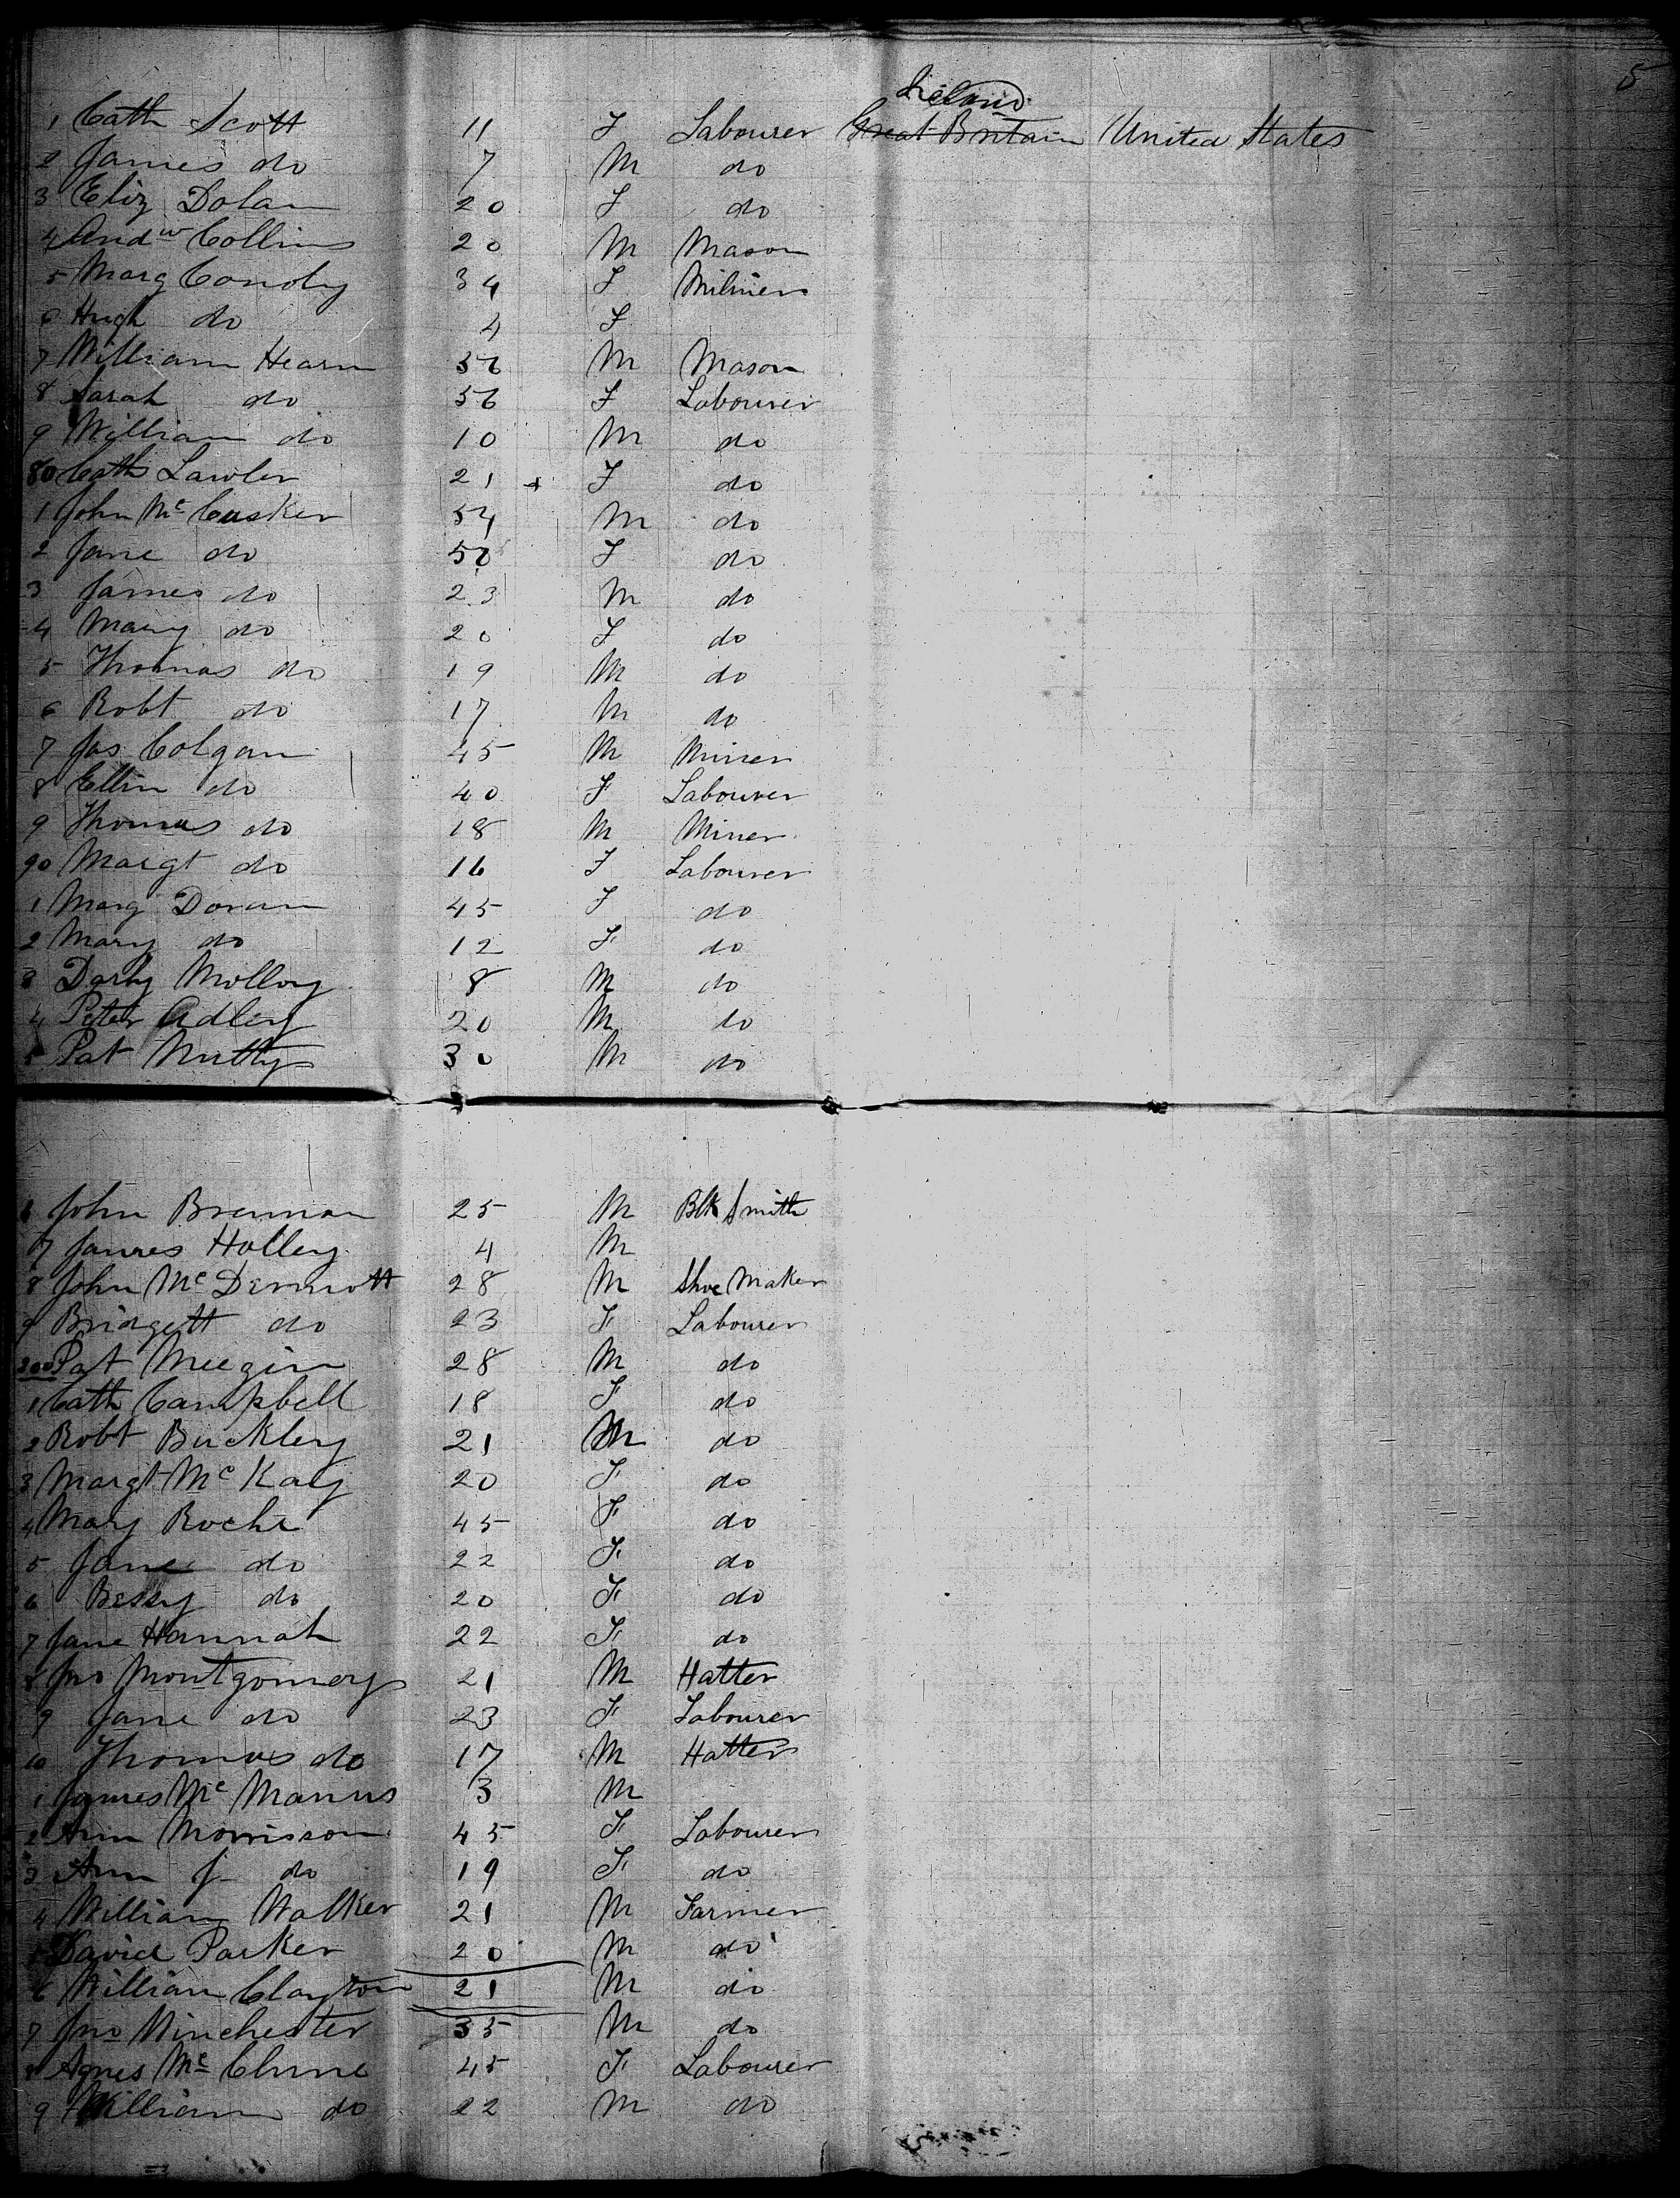 5
Ireland
1 Cath Scott 11 F Labourer Great Britain United States
2 James do 7 M do
3 Eliz Dolan 20 F do
4 Andw Collins 20 M Mason
5 Marg Conoly 34 F Milner
6 Hugh do 4 F
7 William Hearn 56 M Mason
8 Sarah do 56 F Labourer
9 William do 10 M do
80 Cath Lawler 21 F do
1 John Mc Cusker 54 M do
2 Jane do 50 F do
3 James do 23 M do
4 Mary do 20 F do
5 Thomas do 19 M do
6 Robt do 17 M do
7 Jas Colgan 45 M Miner
8 Ellin do 40 F Labourer
9 Thomas do 18 M Miner
90 Margt do 16 F Labourer
1 Marg Doran 45 F do
2 Mary do 12 F do
3 Darby Molloy 8 M do
4 Peter Adley 20 M do
5 Pat 30 M do
6 John Brennan 25 M Blk Smith
7 James Holley 4 M
8 John Mc Dermott 28 M Shoe Maker
9 Bridgett do 23 F Labourer
200 Pat Meegin 28 M do
1 Cath Campbell 18 F do
2 Robt Buckley 21 M do
3 Margt Mc Kay 20 F do
4 Mary Roche 45 F do
5 Jane do 22 F do
6 Bessy do 20 F do
7 Jane Hannah 22 F do
8 Jno Montgomery 21 M Hatter
9 Jane do 23 F Labourer
10 Thomas do 17 M Hatter
1 James Mc Manus 3 M
2 Ann Morrisson 45 F Labourer
3 Ann J do 19 F do
4 William Walker 21 M Farmer
5 David Parker 20 M do
6 William Clayton 21 M do
7 Jno Winchester 35 M do
8 Agnes Mc Clune 45 F Labourer
9 William do 22 M do